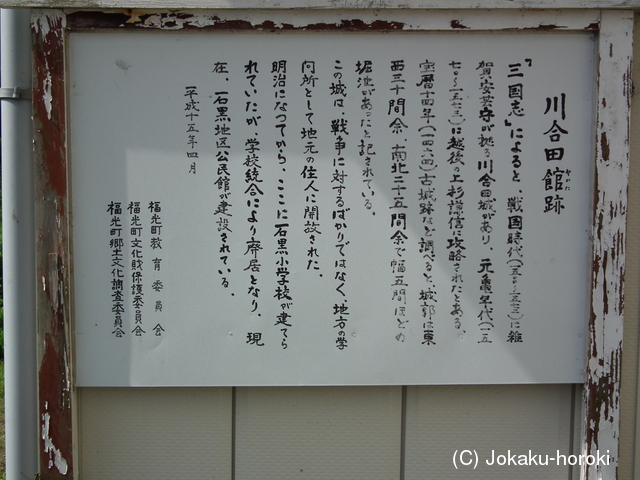 川合田館跡
かわいだ
『三国志』によると、戦国時代(一五〇〇〜一五七三)に雑
賀安芸守が拠る川合田城があり、元亀年代(一五
七〇〜一五七三)に越後の上杉謙信に攻略されたとある。
宝暦十四年(一七六四)古城跡など調べると、城郭は東
西三十間余、南北二十五間余で幅五間ほどの
堀溝があったと記されている。
この城は、戦争に対するばかりではなく、地方の学
問所として地元の住人に開放された。
明治になってから、ここに石黒小学校が建てら
れていたが、学校統合により廃居となり、現
在、石黒地区公民館が建設されている。
平成十五年四月
福光町教育委員会
福光町文化財保護委員会
福光町郷土文化調査委員会
(C) Jokaku-horoki